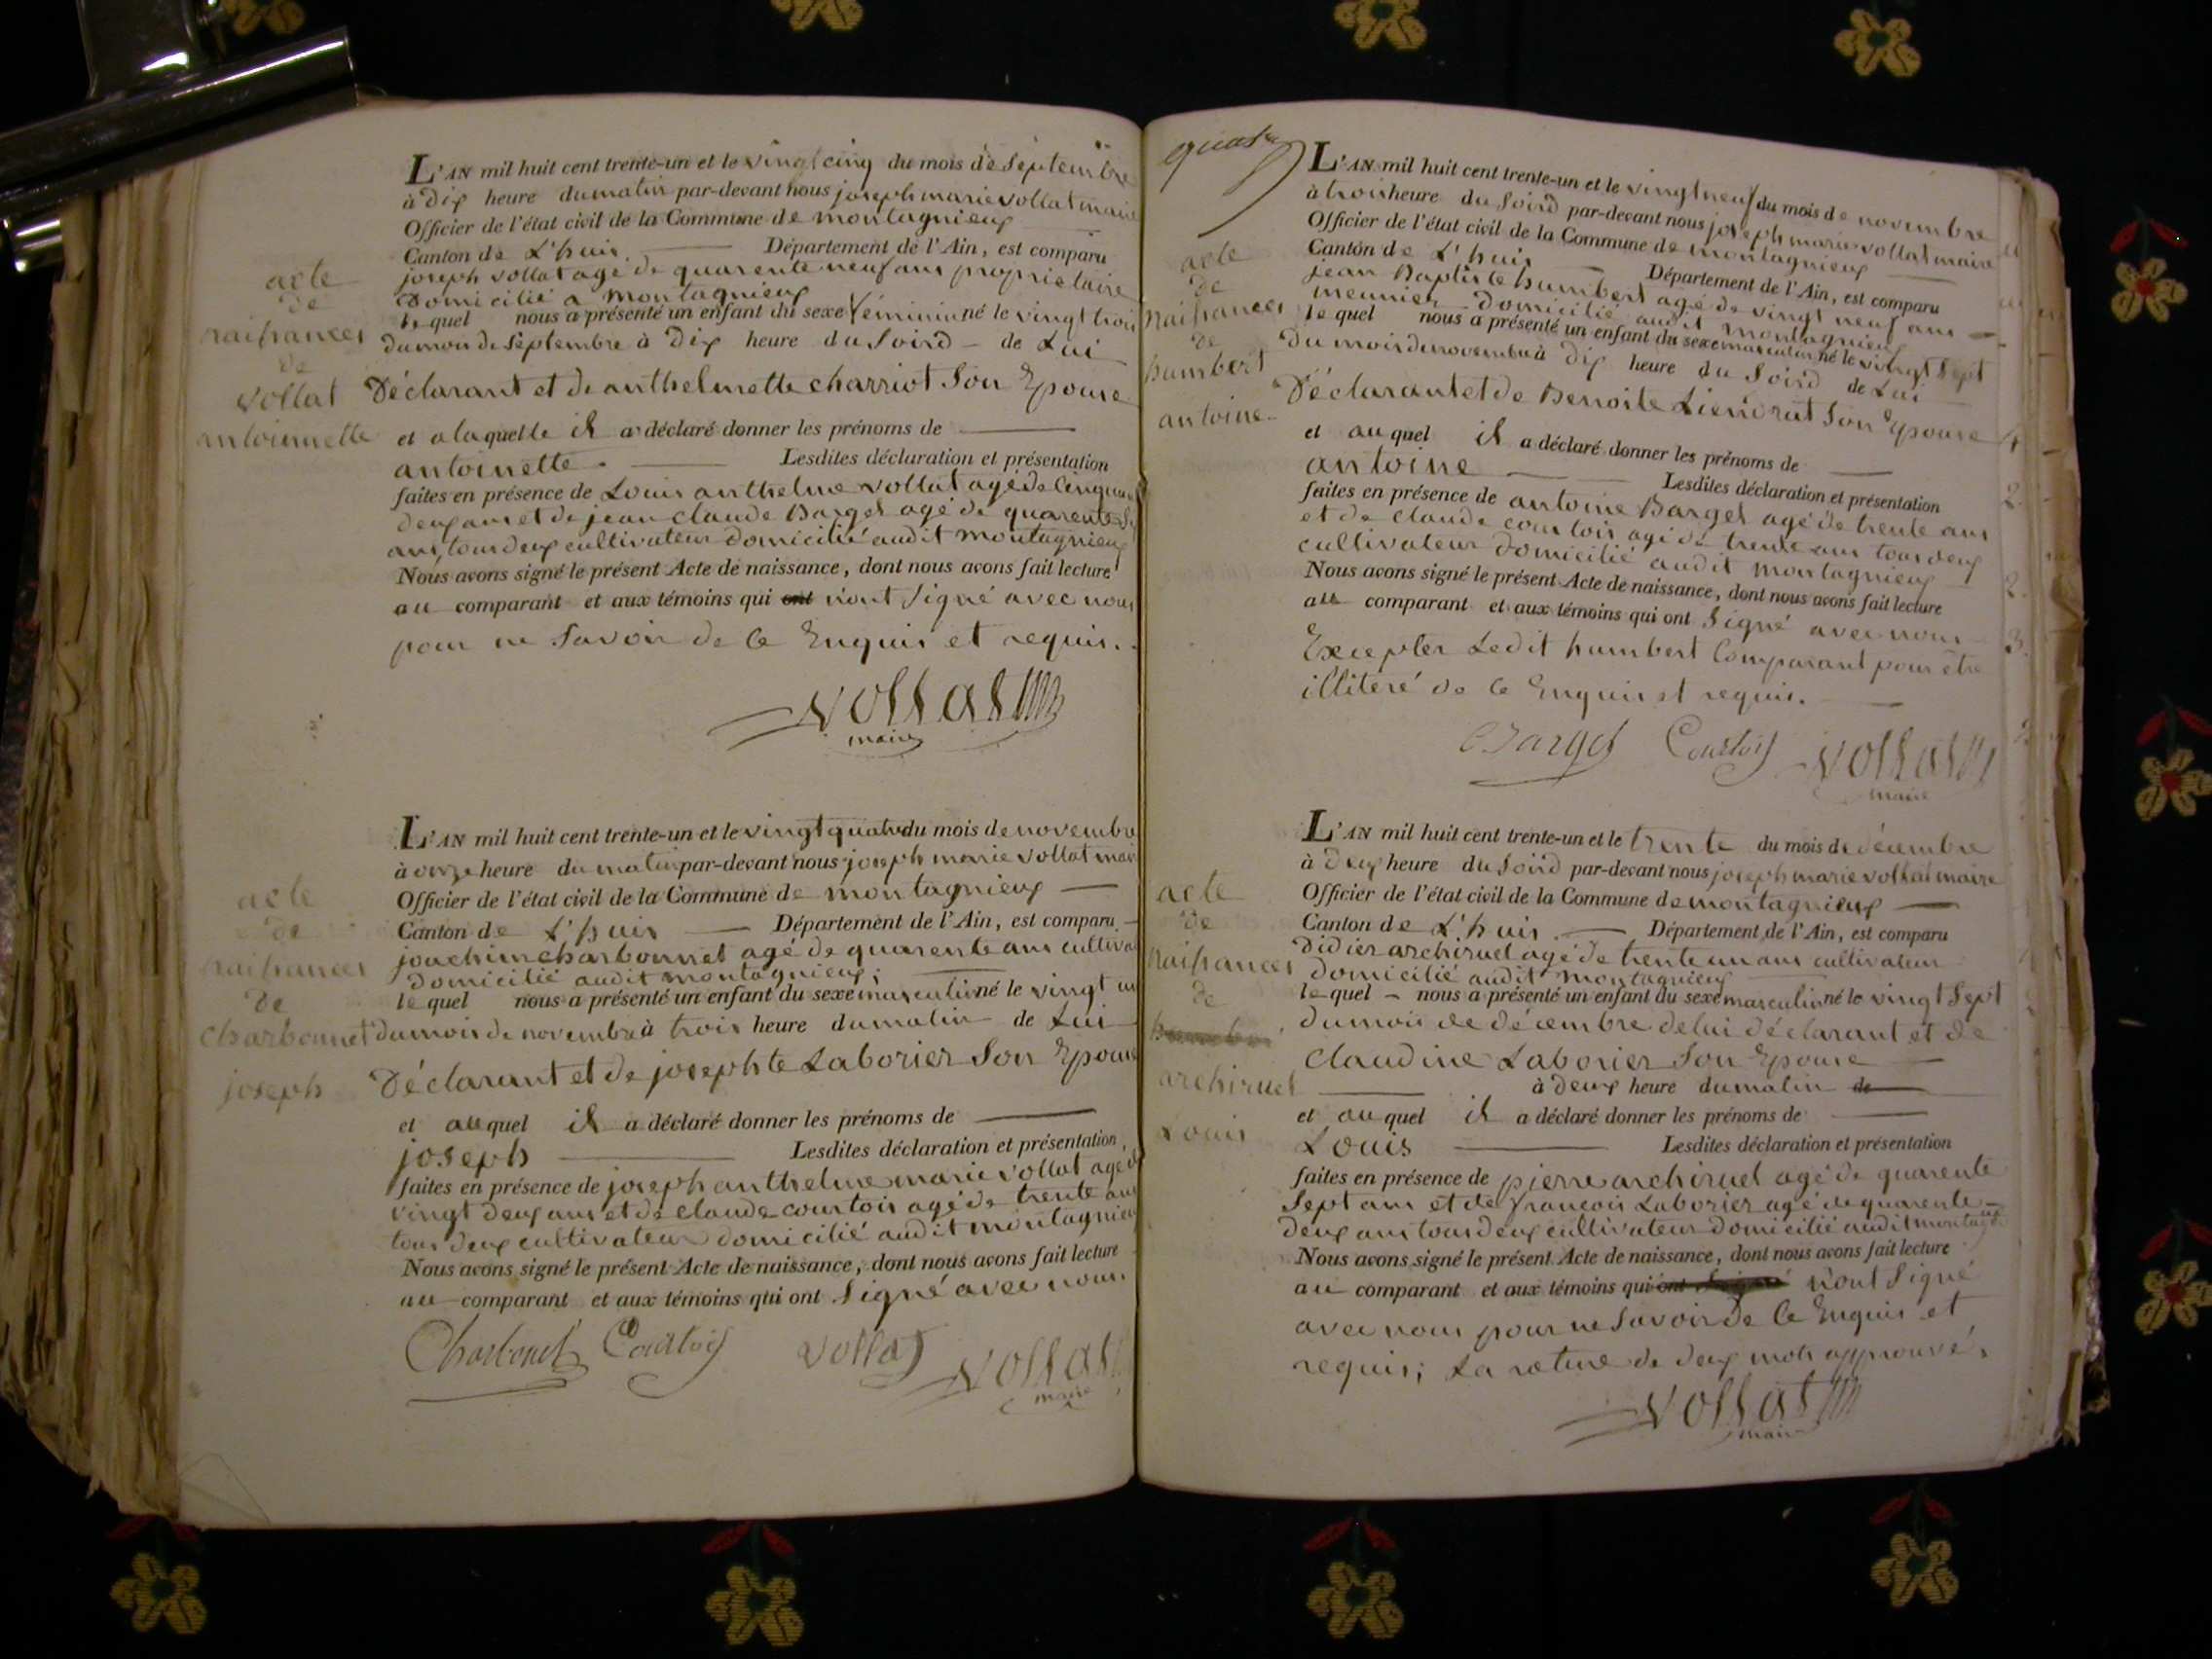 acte
de
naissances
de
vollat
antoinnette
L'AN mil huit cent trente-un et le vingt cinq du mois de septembre
à dix heure du matin par-devant nous joseph marie vollat maire
Officier de l'état civil de la Commune de montagnieux
Canton de L'huis. Département de l'Ain, est comparu
joseph vollat agé de quarente neuf ans proprietaire
Domicilié a montagnieux
le quel nous a présenté un enfant du sexe féminin né le vingt trois
du mois de septembre à dix heure du soird de Lui
Déclarant et de anthelmette charriot son Epouse
et a laquelle il a déclaré donner les prénoms de
antoinette. Lesdites déclaration et présentation
faites en présence de Louis anthelme vollat agé de cinquante
deux ans et de jean claude Barget agé de quarente
ans, tous deux cultivateur domicilié audit montagnieux
Nous avons signé le présent Acte de naissance, dont nous avons fait lecture
au comparant et aux témoins qui ont n'ont signé avec nous
pour ne savoir de ce Enquis et requis.
vollat
maire
acte
de
naissances
de
charbonnet
joseph
L'AN mil huit cent trente-un et le vingt quatre du mois de novembre
à onze heure du matin par-devant nous joseph marie vollat maire
Officier de l'état civil de la Commune de montagnieux
Canton de L'huis Département de l'Ain, est comparu
jouchim charbonnet agé de quarente ans cultivat
domicilié audit montagnieux;
le quel nous a présenté un enfant du sexe masculin né le vingt un
du mois de novembre à trois heure du matin de Lui
Déclarant et de josephte Laborier son Epouse
et auquel il a déclaré donner les prénoms de
joseph Lesdites déclaration et présentation
faites en présence de joseph anthelme marie vollat agé de
vingt deux ans et de claude courtois agé de trente ans
tous deux cultivateur domicilié audit montagnieux
Nous avons signé le présent Acte de naissance, dont nous avons fait lecture
au comparant et aux témoins qui ont signé avec nous.
Charbonet Courtois vollat vollat
maire
acte
de
naissances
de
humbert
antoine
L'AN mil huit cent trente-un et le vingt neuf du mois de novembre
à trois heure du soird par-devant nous joseph marie vollat maire
Officier de l'état civil de la Commune de montagnieux
Canton de L'huis Département de l'Ain, est comparu
jean Baptiste humbert agé de vingt neuf ans
meunier domicilié audit montagnieux
le quel nous a présenté un enfant du sexe masculin né le vingt sept
du mois de novembre à dix heure du soird de Lui
Déclarant et de Benoite Liendrat son Epouse
et auquel il a déclaré donner les prénoms de
antoine Lesdites déclaration et présentation
faites en présence de antoine Barget agé de trente ans
et de claude courtois agé de trente ans tous deux
cultivateur domicilié audit montagnieux
Nous avons signé le présent Acte de naissance, dont nous avons fait lecture
au comparant et aux témoins qui ont signé avec nous
Excepter Ledit humbert Comparant pour être
illiteré de ce Enquis et requis.
Barget Courtois vollat
maire
acte
de
naissances
de
archiruel
Louis
L'AN mil huit cent trente-un et le trente du mois de décembre
à deux heure du soird par-devant nous joseph marie vollat maire
Officier de l'état civil de la Commune de montagnieux
Canton de L'huis. Département de l'Ain, est comparu
didier archiruel agé de trente un ans cultivateur
domicilié audit montagnieux
le quel nous a présenté un enfant du sexe masculin né le vingt sept
du mois de décembre de lui déclarant et de
claudine Laborier son Epouse
à deux heure du matin de
et auquel il a déclaré donner les prénoms de
Louis Lesdites déclaration et présentation
faites en présence de pierre archiruel agé de quarente
sept ans et de françois Laborier agé de quarente
deux ans tous deux cultivateur domicilié audit montag
Nous avons signé le présent Acte de naissance, dont nous avons fait lecture
au comparant et aux témoins qui ont signé n'ont signé
avec nous pour ne savoir de ce Enquis et
requis; La rature de deux mots approuvé.
vollat
maire